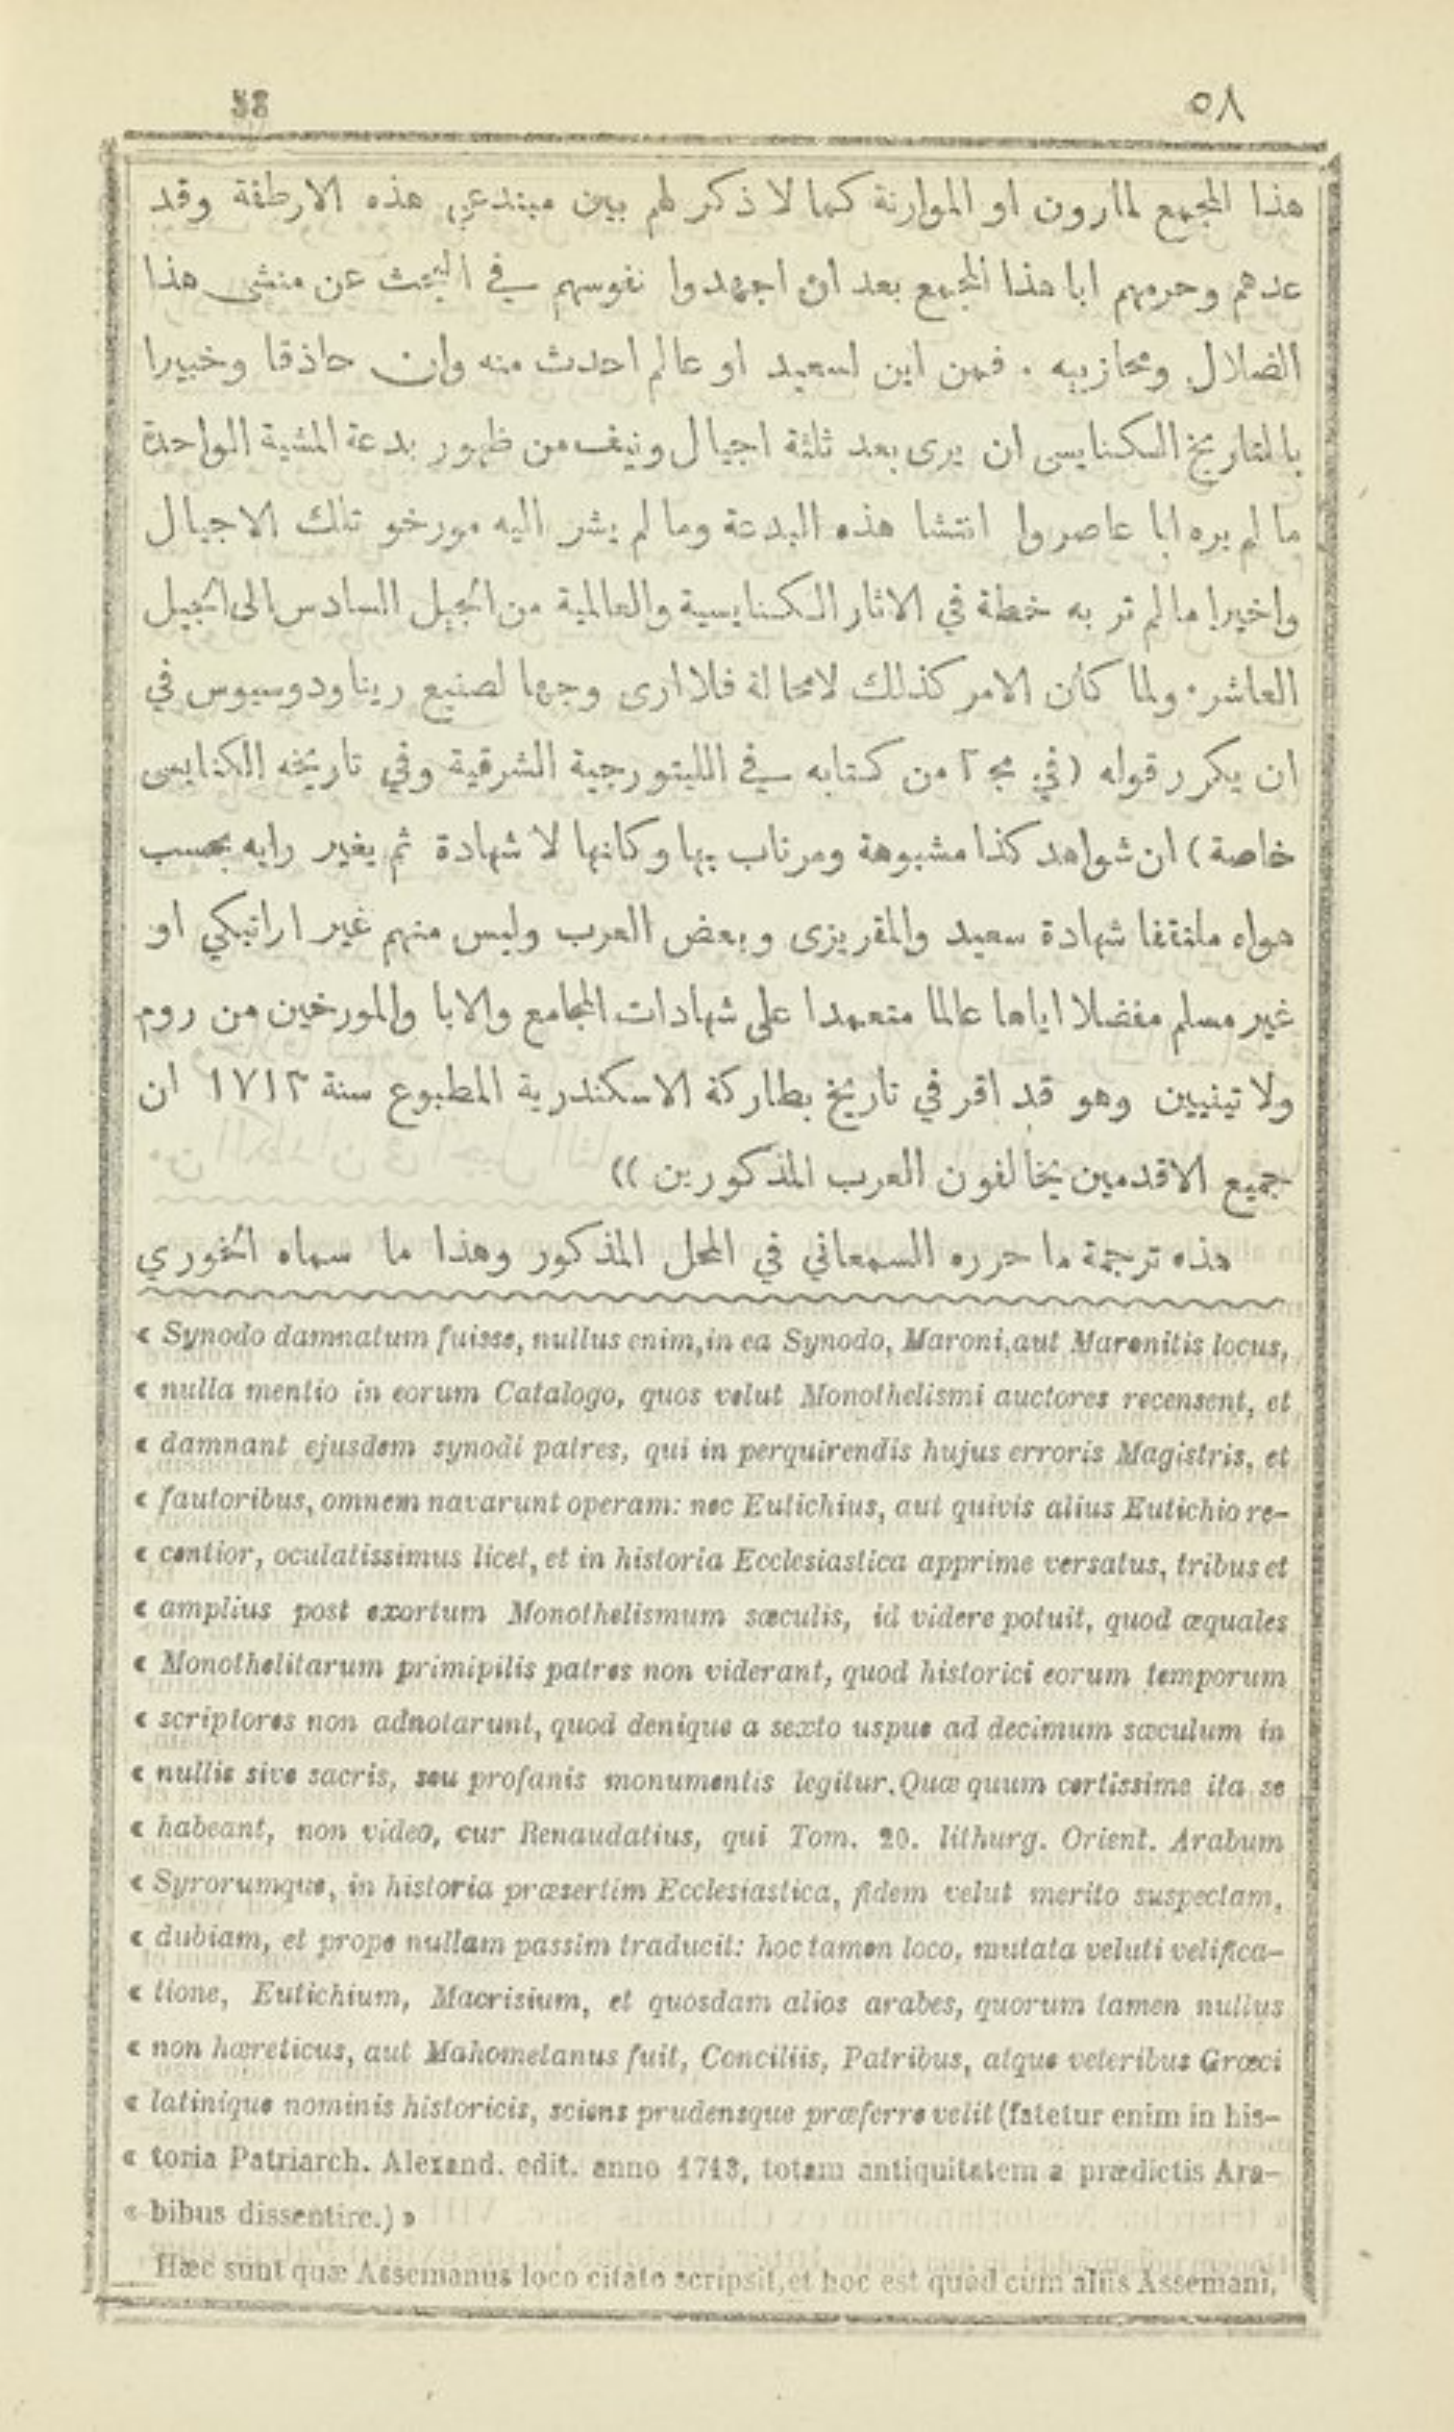 58 ٥٨
هذا المجمع لمارون او الموارنة كما لا ذكر لهم بين مبتدعى هذه الارطقة وقد
عدهم وحرمهم ابا هذا المجمع بعد ان اجهدوا نفوسهم في البحث عن منشى هذا
الضلال ومحازبيه . فمن اين لسعيد او عالم احدث منه وان حاذقا وخبيرا
بالتاريخ الكنايسى ان يرى بعد ثلثة اجيال ونيف من ظهور بدعة المشية الواحدة
ما لم يره ابا عاصروا انتشا هذه البدعة وما لم يشر اليه مورخو تلك الاجيال
واخيرا ما لم تر به خطة في الاثار الكنايسية والعالمية من الجيل السادس الى الجيل
العاشر . ولما كان الامر كذلك لامحالة فلا ارى وجها لصنيع ريناودوسيوس في
ان يكرر قوله ( في مج ٢ من كتابه في الليتورجية الشرقية وفي تاريخه الكنايسى
خاصة ) ان شواهد كذا مشبوهة ومرتاب بها وكانها لا شهادة ثم يغير رايه بحسب
هواه ملتقفا شهادة سعيد والمقريزى وبعض العرب وليس منهم غير اراتيكي او
غير مسلم مفضلا اياها عالما متعمدا على شهادات المجامع والابا والمورخين من روم
ولاتينيين وهو قد اقر في تاريخ بطاركة الاسكندرية المطبوع سنة ١٧١٣ ان
جميع الاقدمين يخالفون العرب المذكورين ))
هذه ترجمة ما حرره السمعاني في المحل المذكور وهذا ما سماه الخوري
« Synodo damnatum fuisse, nullus enim, in ea Synodo, Maroni, aut Maronitis locus,
« nulla mentio in eorum Catalogo, quos velut Monothelismi auctores recensent, et
« damnant ejusdem synodi patres, qui in perquirendis hujus erroris Magistris, et
« fautoribus, omnem navarunt operam: nec Eutichius, aut quivis alius Eutichio re-
« centior, oculatissimus licet, et in historia Ecclesiastica apprime versatus, tribus et
« amplius post exortum Monothelismum sæculis, id videre potuit, quod æquales
« Monothelitarum primipilis patres non viderant, quod historici eorum temporum
« scriptores non adnotarunt, quod denique a sexto uspue ad decimum sæculum in
« nullis sive sacris, seu profanis monumentis legitur. Quæ quum certissime ita se
« habeant, non video, cur Renaudatius, qui Tom. 20. lithurg. Orient. Arabum
« Syrorumque, in historia præsertim Ecclesiastica, fidem velut merito suspectam,
« dubiam, et prope nullam passim traducit: hoc tamen loco, mutata veluti velifica-
« tione, Eutichium, Macrisium, et quosdam alios arabes, quorum tamen nullus
« non hæreticus, aut Mahometanus fuit, Conciliis, Patribus, atque veteribus Græci
« latinique nominis historicis, sciens prudensque præferre velit (fatetur enim in his-
« toria Patriarch. Alexand. edit. anno 1713, totam antiquitatem a prædictis Ara-
« bibus dissentire.) »
Hæc sunt quæ Assemanus loco citato scripsit, et hoc est quod cum aliis Assemani,